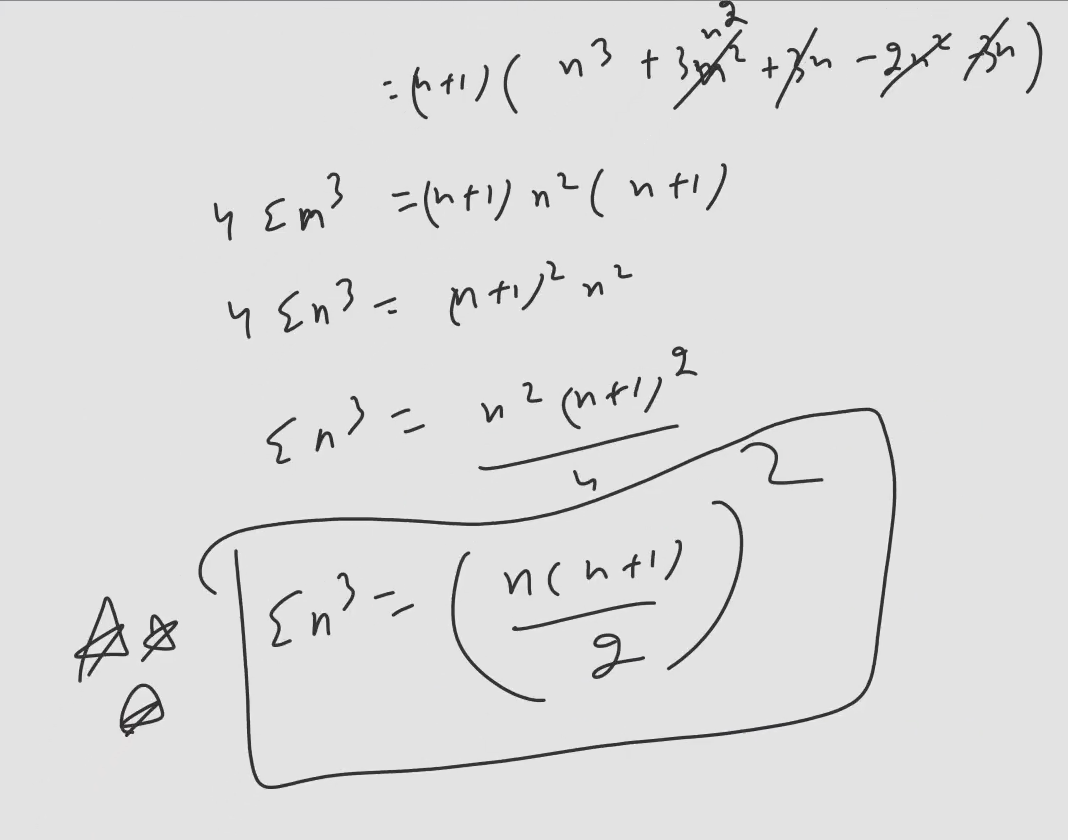 =(n+1)( n³ + 3n² n² + 3n - 2n² 3n )
4 Σn³ =(n+1) n² ( n+1)
4 Σn³ = (n+1)² n²
Σn³ = n² (n+1)² / 4
Σn³ = ( n(n+1) / 2 )²